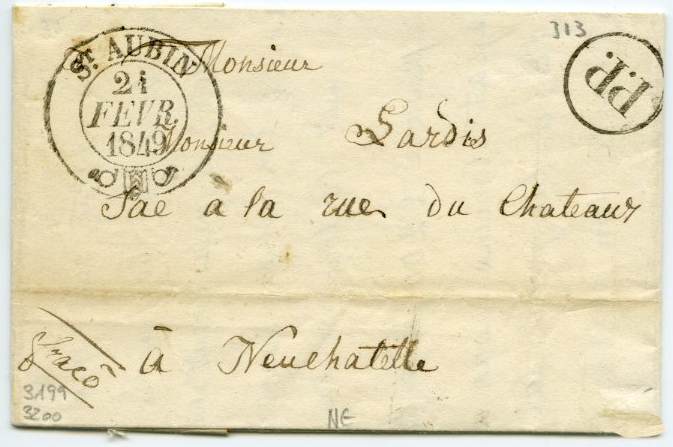 313
ST. AUBIN
21
FEVR.
1849
P.P.
Monsieur
Monsieur Lardis
Jae a la rue du Chateaux
à Neuchatelle
Fracò
3199
3200
NE